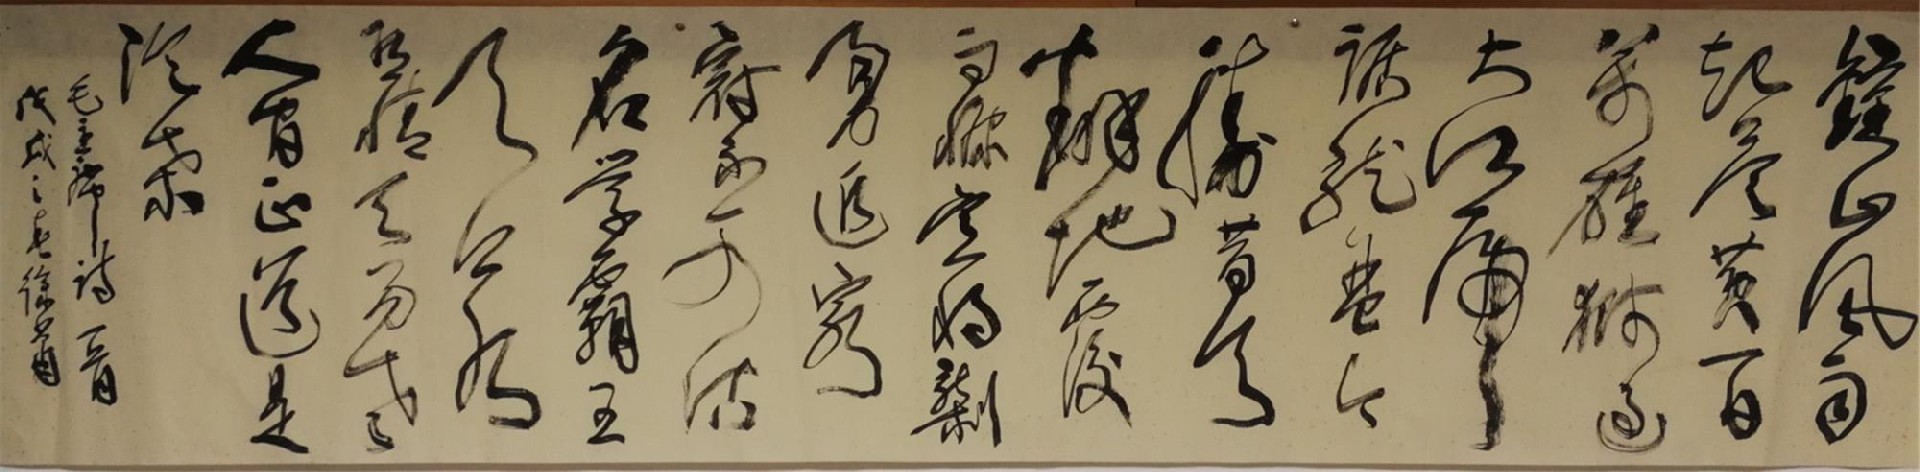 鐘山風雨
起蒼黄百
萬雄獅過
大江虎
踞龍盤今
勝昔天
翻地覆
而慷宜將剩
勇追窮
寇不可沽
名學霸王
天若
有情天亦老
人間正道是
滄桑
毛主席詩一首
戊戌之春徐